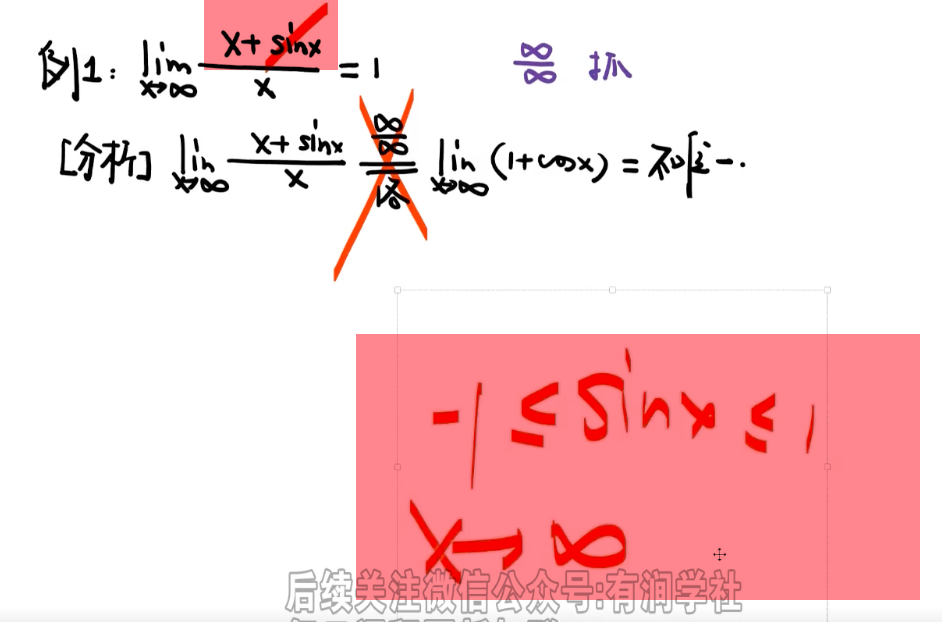 例1: lim x→∞ (x+sinx)/x = 1 ∞/∞ 抓
[分析] lim x→∞ (x+sinx)/x ∞/∞ 洛 lim x→∞ (1+cosx) = 不一定.
-1 ≤ sinx ≤ 1
x→∞
后续关注微信公众号:有润学社